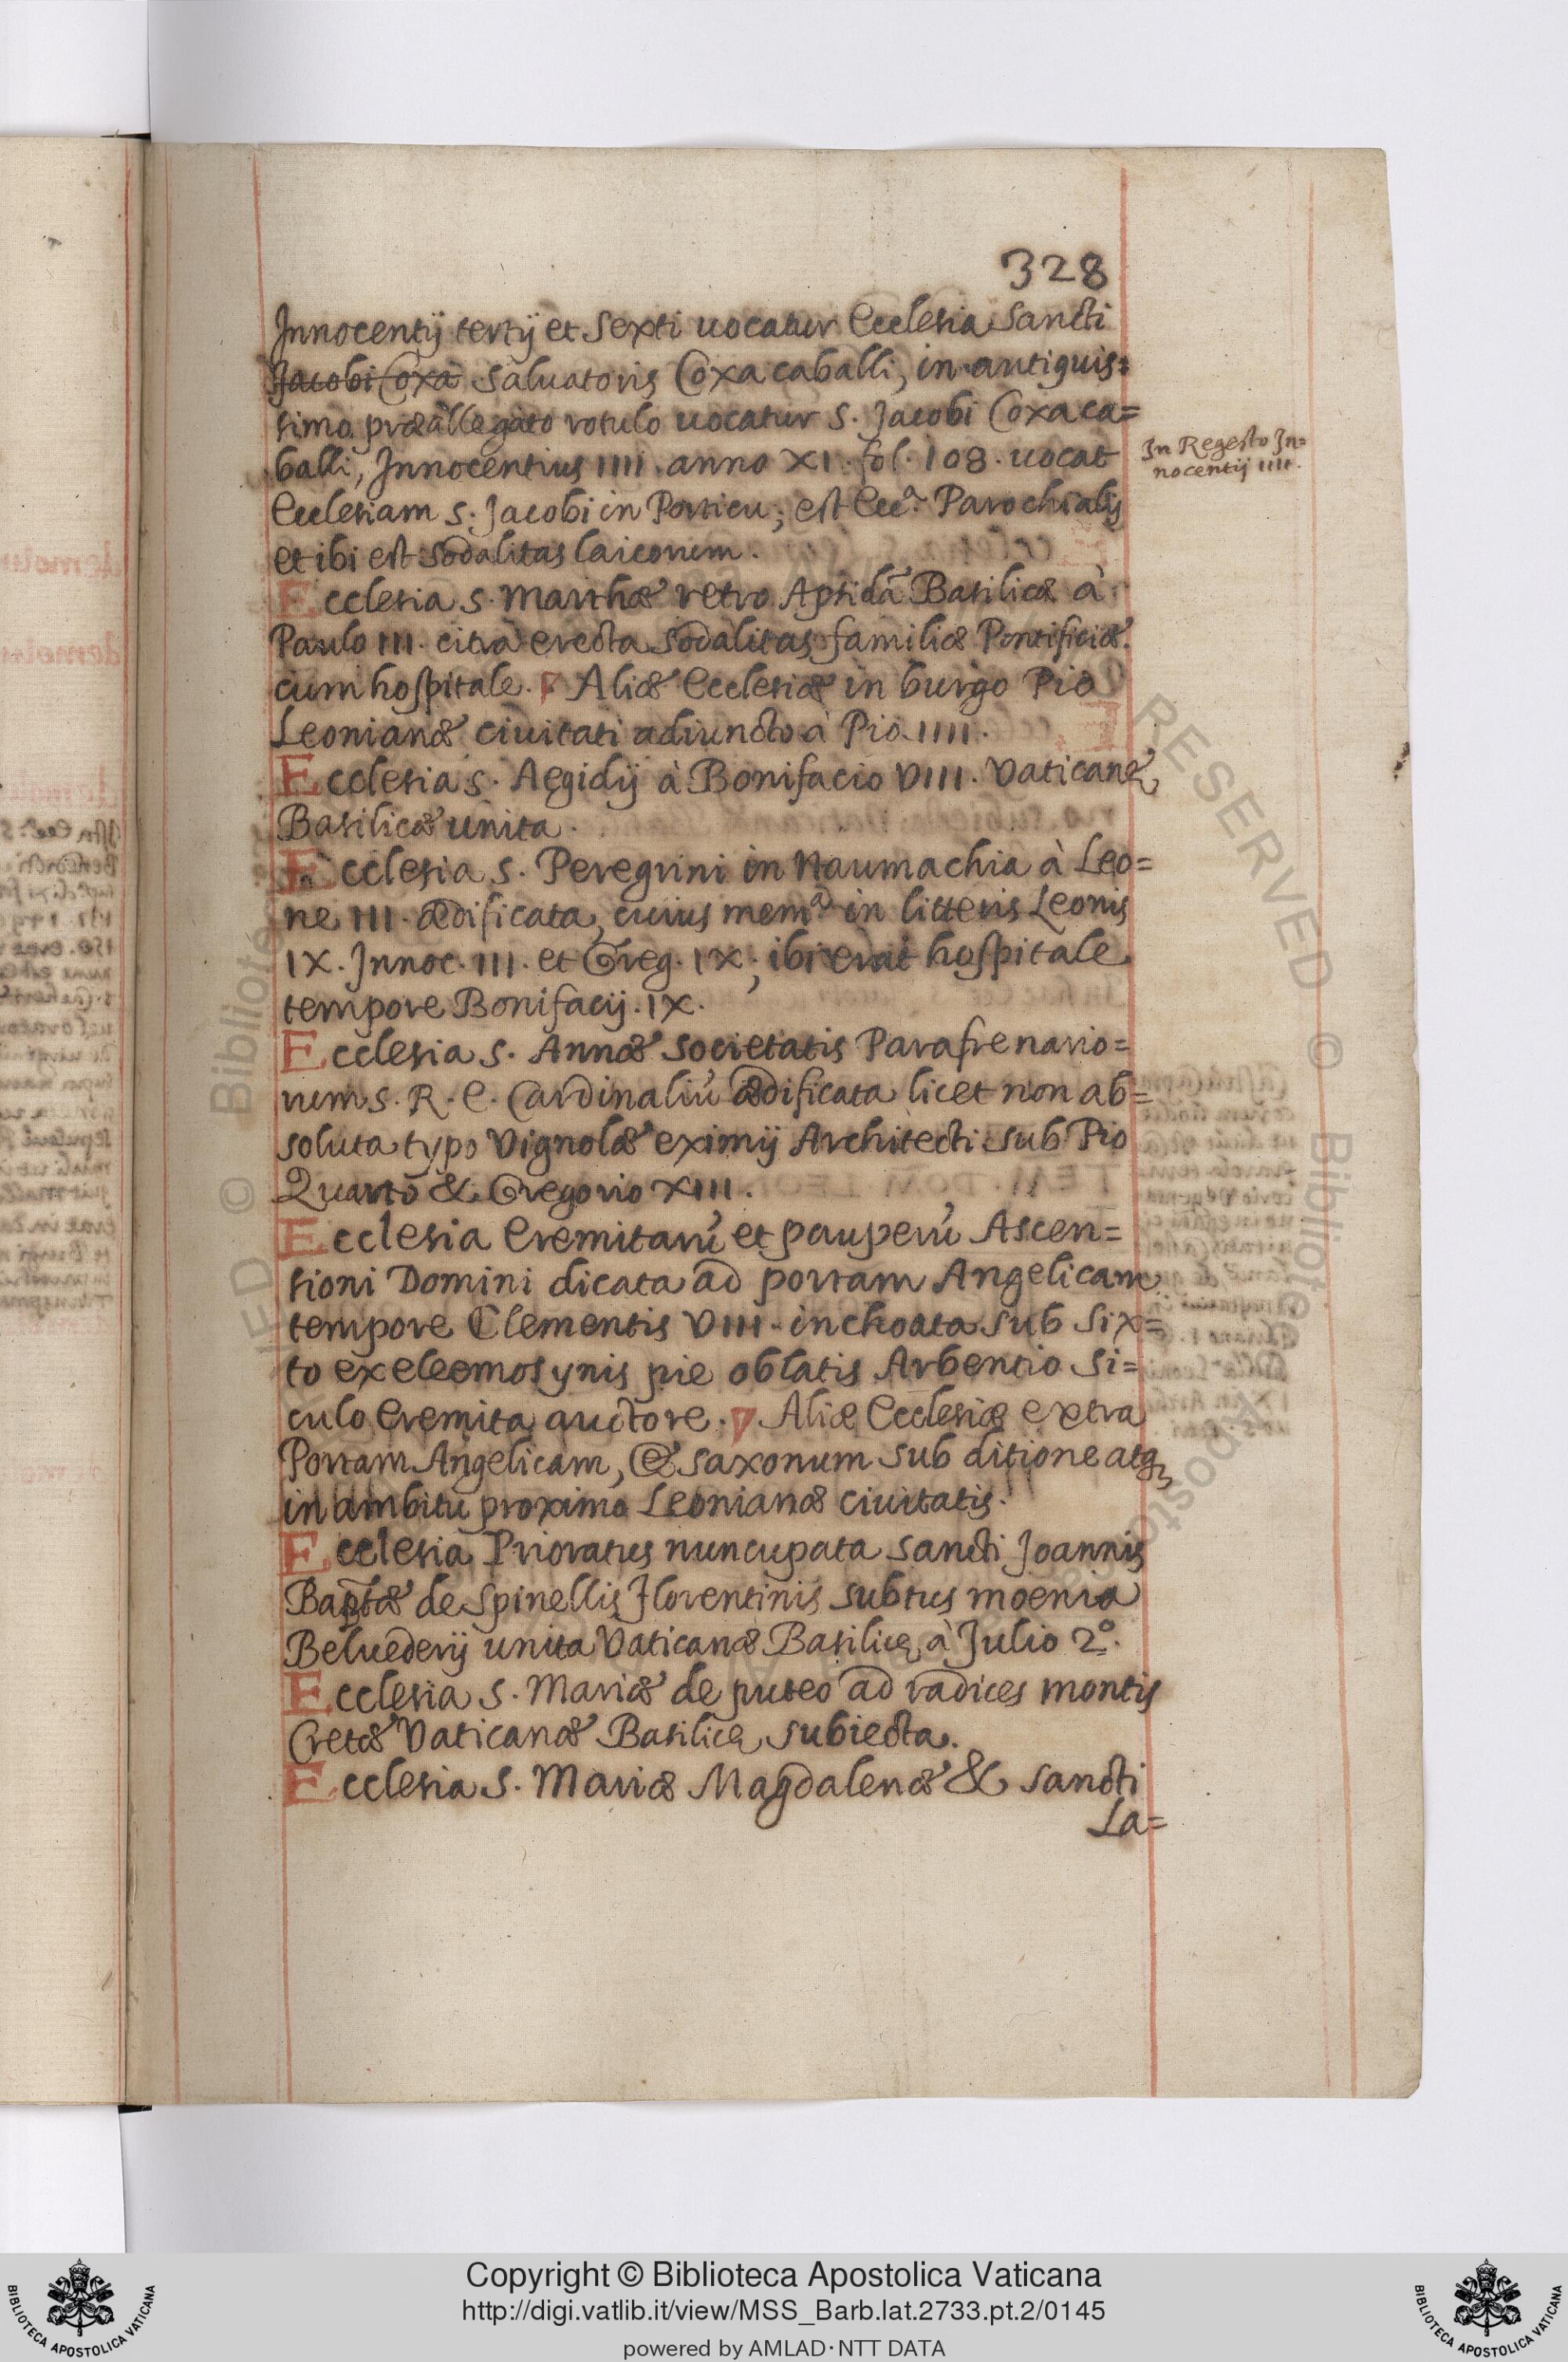 328
Innocentij tertij et Sexti uocatur Ecclesia Sancti
Jacobi Coxa Saluatoris Coxa caballi, in antiquis=
simo præallegato rotulo uocatur S. Jacobi Coxa ca=
balli, Innocentius IIII. anno XI. fol. 108. uocat
Ecclesiam S. Jacobi in Porticu; est Ecc.ª Parochialis
et ibi est sodalitas laicorum.
In Regesto In=
nocentij IIII.
Ecclesia S. Marthæ retro Apsidã Basilicæ à
Paulo III. citra erecta sodalitas familiæ Pontificiæ
cum hospitale. Aliæ Ecclesiæ in burgo Pio
Leonianæ ciuitati adiuncto à Pio IIII.
Ecclesia S. Aegidij à Bonifacio VIII. Vaticanę
Basilicæ unita.
Ecclesia S. Peregrini in Naumachia à Leo=
ne III. ædificata, cuius mem.ª in litteris Leonis
IX. Innoc. III. et Greg. IX; ibi erat hospitale
tempore Bonifacij. IX.
Ecclesia S. Annæ societatis Parafrenario=
rum S. R. E. Cardinaliũ ædificata licet non ab=
soluta typo Vignolæ eximij Architecti sub Pio
Quarto & Gregorio XIII.
Ecclesia Eremitarũ et pauperũ Ascen=
sioni Domini dicata ad portam Angelicam
tempore Clementis VIII. inchoata sub Six=
to ex eleemosynis pie oblatis Arbentio Si=
culo Eremita auctore. Aliæ Ecclesiæ extra
Portam Angelicam, & saxonum sub ditione atq;
in ambitu proximo Leonianæ ciuitatis.
Ecclesia Prioratus nuncupata Sancti Joannis
Bap̃tæ de Spinellis Florentinis subtus moenia
Beluederij unita Vaticanæ Basilicę à Julio 2º.
Ecclesia S. Mariæ de puteo ad radices montis
Cretæ Vaticanæ Basilicę subiecta.
Ecclesia S. Mariæ Magdalenæ & Sancti
La=
Copyright © Biblioteca Apostolica Vaticana
http://digi.vatlib.it/view/MSS_Barb.lat.2733.pt.2/0145
powered by AMLAD·NTT DATA
BIBLIOTECA APOSTOLICA VATICANA
BIBLIOTECA APOSTOLICA VATICANA